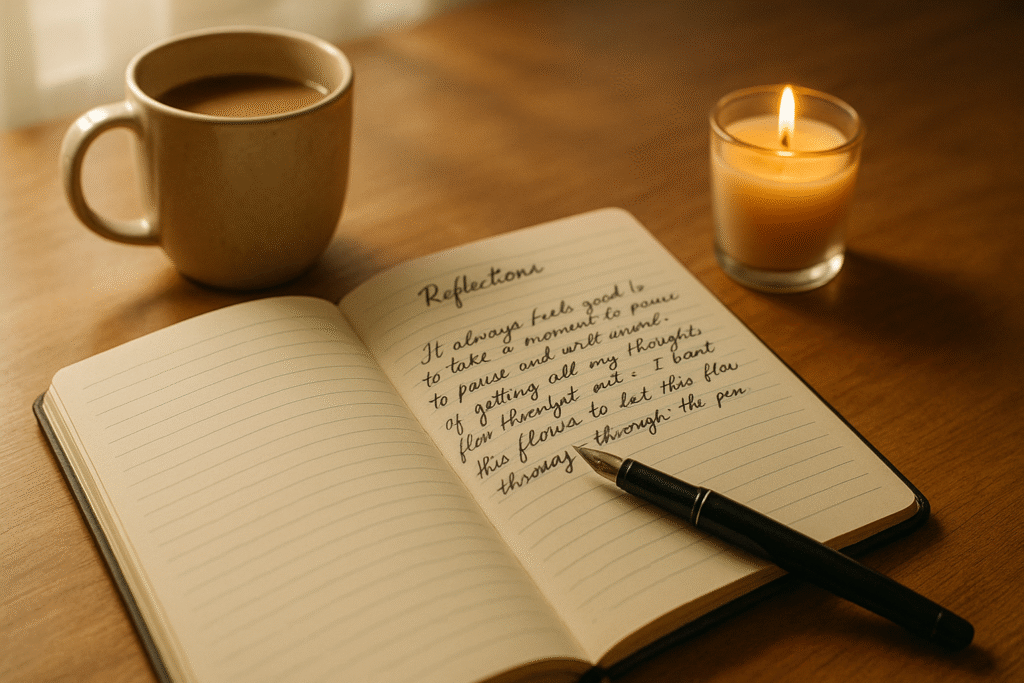 Reflections
It always feels good Is
to take a moment to pause
to pause and writ
of getting all my thoughts
flow out : I bant
this flows to let this flow
through the pen.